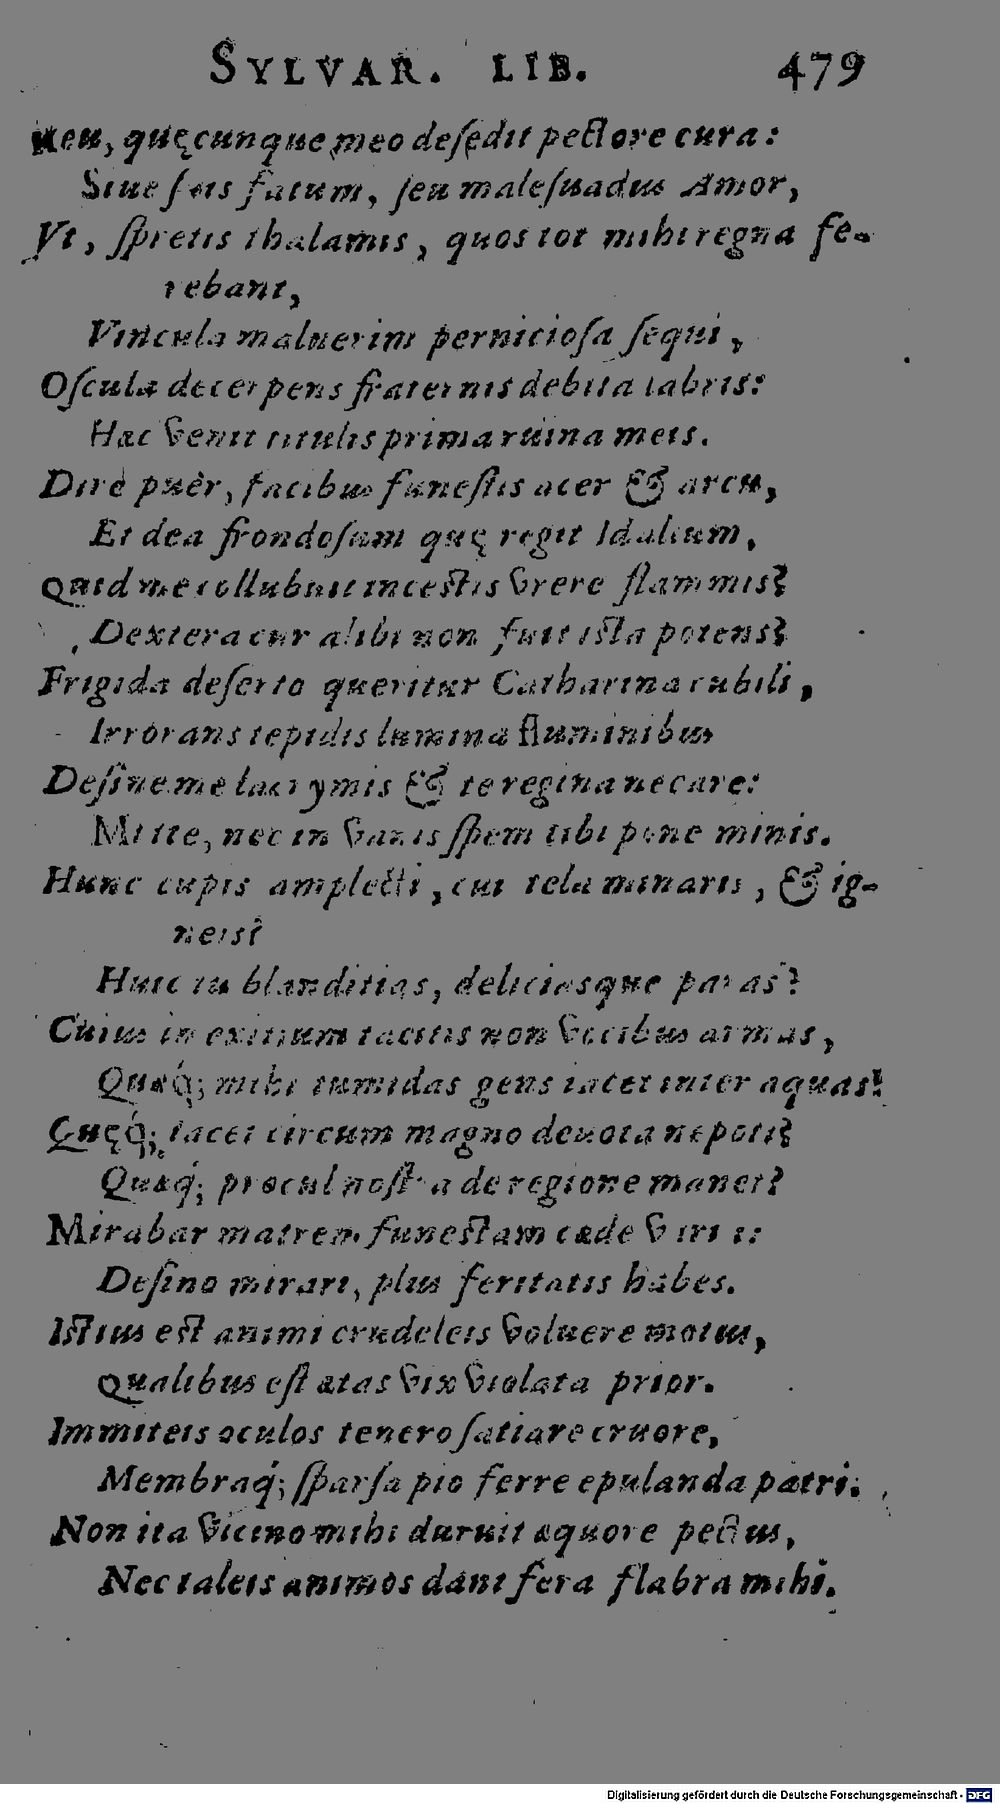 SYLVAR. LIB. 479
Heu, quęcunque meo deſedit pectore cura:
Siue fuis fatum, ſeu maleſuadus Amor,
Vt, ſpretis thalamis, quos tot mihi regna fe-
rebant,
Vincula maluerim pernicioſa ſequi,
Oſcula decerpens fraternis debita labris:
Hac venit titulis prima ruina meis.
Dire puèr, facibus funeſtis acer & arcu,
Et dea frondoſum quę regit Idalium,
Quid me collubuit inceſtis vrere flammis?
Dextera cur alibi non fuit iſta potens?
Frigida deſerto queritur Catharina cubili,
Irrorans tepidis lumina fluminibus
Deſine me lacrymis & te regina necare:
Mitte, nec in vanis ſpem tibi pone minis.
Hunc cupis amplecti, cui tela minaris, & ig-
neis?
Huic tu blanditias, deliciasque paras?
Cuius in exitium tacitis non vocibus armas,
Quæq́; mihi tumidas gens iacet inter aquas?
Quęq́; iacet circum magno deuota nepoti?
Quæq́; procul noſtra de regione manet?
Mirabar matrem funeſtam cæde viri ::
Deſino mirari, plus feritatis habes.
Iſtius eſt animi crudeleis voluere motus,
Qualibus eſt ætas vix violata prior.
Immiteis oculos tenero ſatiare cruore,
Membraq́; ſparſa pio ferre epulanda patri.
Non ita vicino mihi duruit æquore pectus,
Nec taleis animos dant fera flabra mihi.
Digitalisierung gefördert durch die Deutsche Forschungsgemeinschaft - DFG